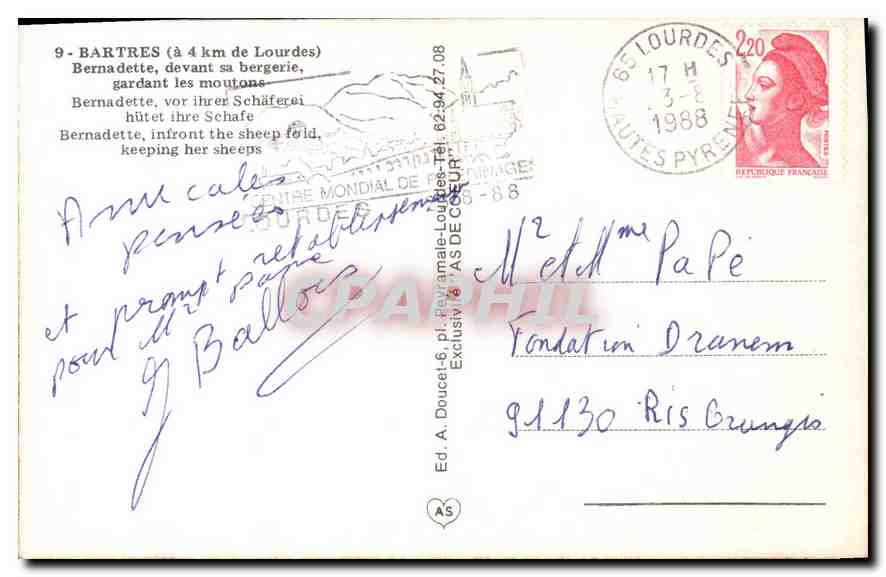 9 - BARTRES (à 4 km de Lourdes)
Bernadette, devant sa bergerie,
gardant les moutons
Bernadette, vor ihrer Schäferei
hütet ihre Schafe
Bernadette, infront the sheep fold,
keeping her sheeps
CENTRE MONDIAL DE PELERINAGES
LOURDES 1858-88
65 LOURDES
17 H
3-8
1988
HAUTES PYRENEES
2,20
POSTES
REPUBLIQUE FRANÇAISE
Amicales
pensées
et prompt rétablissement
pour Mr Papé
G Ballois
Ed. A. Doucet-6, pl. Peyramale-Lourdes-Tél. 62.94.27.08
Exclusivité "AS DE COEUR"
AS
Mr et Mme Papé
Fondation Dranem
91130 Ris Orangis
CPAPHIL